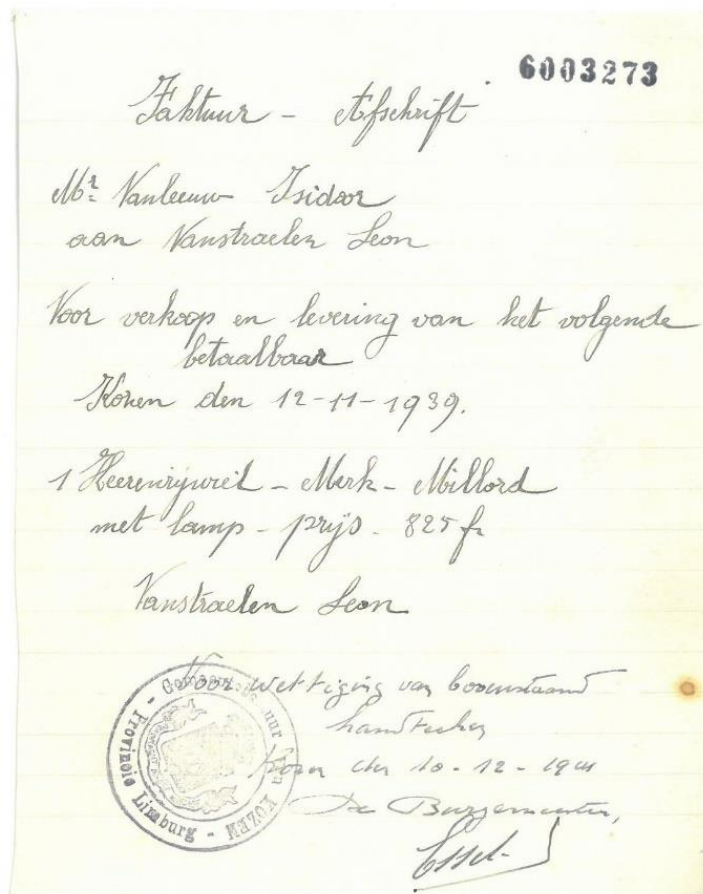 6003273
Faktuur - Afschrift
Mr Vanleeuw Isidoor
aan Vanstraelen Leon
Voor verkoop en levering van het volgende
betaalbaar
Kozen den 12-11-1939.
1 Heerenrijwiel - Merk - Millord
met lamp - prijs - 825 fr
Vanstraelen Leon
Voor wettiging van bovenstaand
handteken
Kozen den 10-12-19
De Burgemeester,
Provincie Limburg - KOZEN